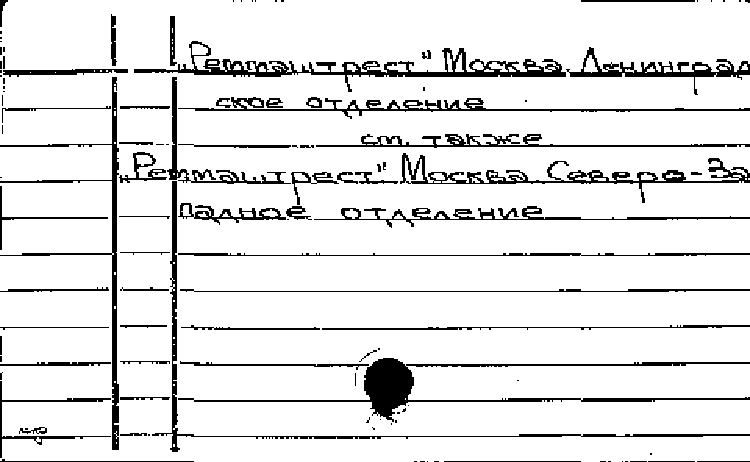 „Ретмаштрест" Москва. Ленинград
ское отделение
см. также
„Ретмаштрест" Москва Северо-За
падное отделение